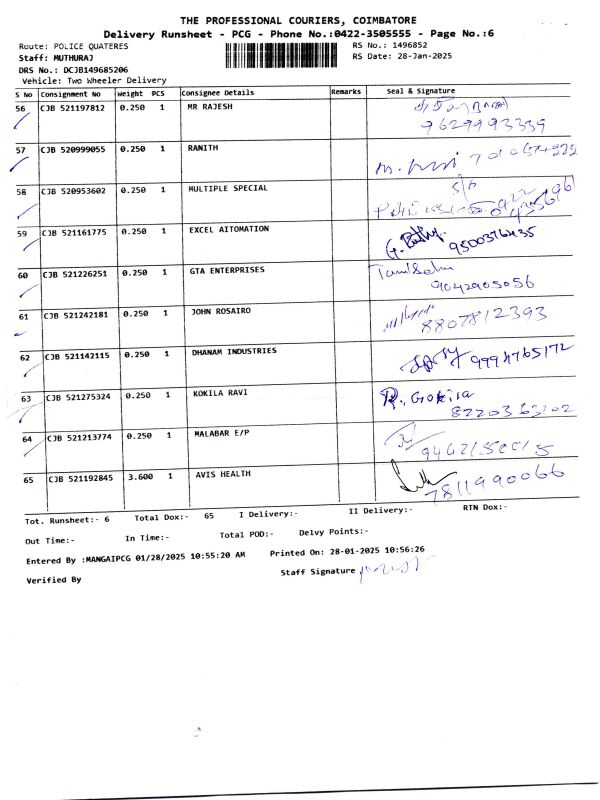 THE PROFESSIONAL COURIERS, COIMBATORE
Delivery Runsheet - PCG - Phone No.:0422-3505555 - Page No.:6
Route: POLICE QUATERES RS No.: 1496852
Staff: MUTHURAJ RS Date: 28-Jan-2025
DRS No.: DCJB149685206
Vehicle: Two Wheeler Delivery
S No Consignment No Weight PCS Consignee Details Remarks Seal & Signature
56 CJB 521197812 0.250 1 MR RAJESH
9629993339
57 CJB 520999055 0.250 1 RANITH
58 CJB 520953602 0.250 1 MULTIPLE SPECIAL
59 CJB 521161775 0.250 1 EXCEL AITOMATION
9500376435
60 CJB 521226251 0.250 1 GTA ENTERPRISES
9042905056
61 CJB 521242181 0.250 1 JOHN ROSAIRO
8807812393
62 CJB 521142115 0.250 1 DHANAM INDUSTRIES
9994765172
63 CJB 521275324 0.250 1 KOKILA RAVI R. Gokila
8220363202
64 CJB 521213774 0.250 1 MALABAR E/P
65 CJB 521192845 3.600 1 AVIS HEALTH
7811990066
Tot. Runsheet:- 6 Total Dox:- 65 I Delivery:- II Delivery:- RTN Dox:-
Out Time:- In Time:- Total POD:- Delvy Points:-
Entered By :MANGAIPCG 01/28/2025 10:55:20 AM Printed On: 28-01-2025 10:56:26
Verified By Staff Signature